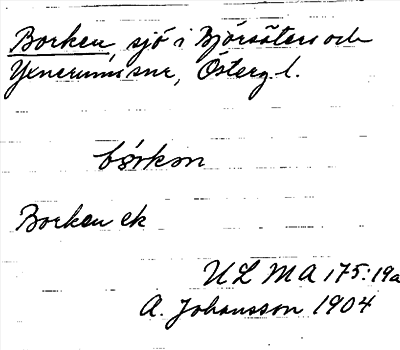 Borken, sjö i Björsäters och
Yxnerums snr, Österg. l.
bórkən
Borken ek
ULMA 175:19a
A. Johansson 1904